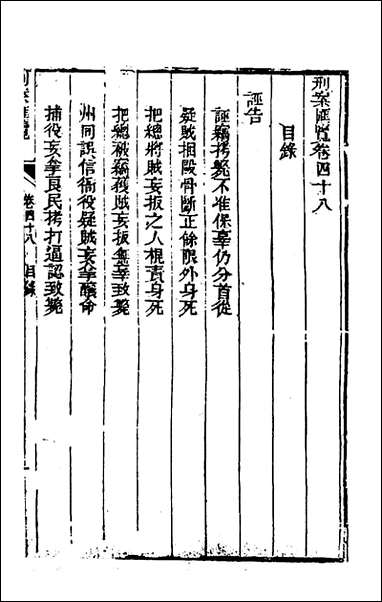 刑案匯覽卷四十八
目錄
誣告
誣竊拷斃不准保辜仍分首從
疑賊捆毆骨斷正餘限外身死
把總將賊妄扳之人棍責身死
把總被竊獲賊妄扳無辜致斃
州同誤信衙役疑賊妄拏釀命
捕役妄拏良民拷打逼認致斃
刑案匯覽
卷四十八
目錄